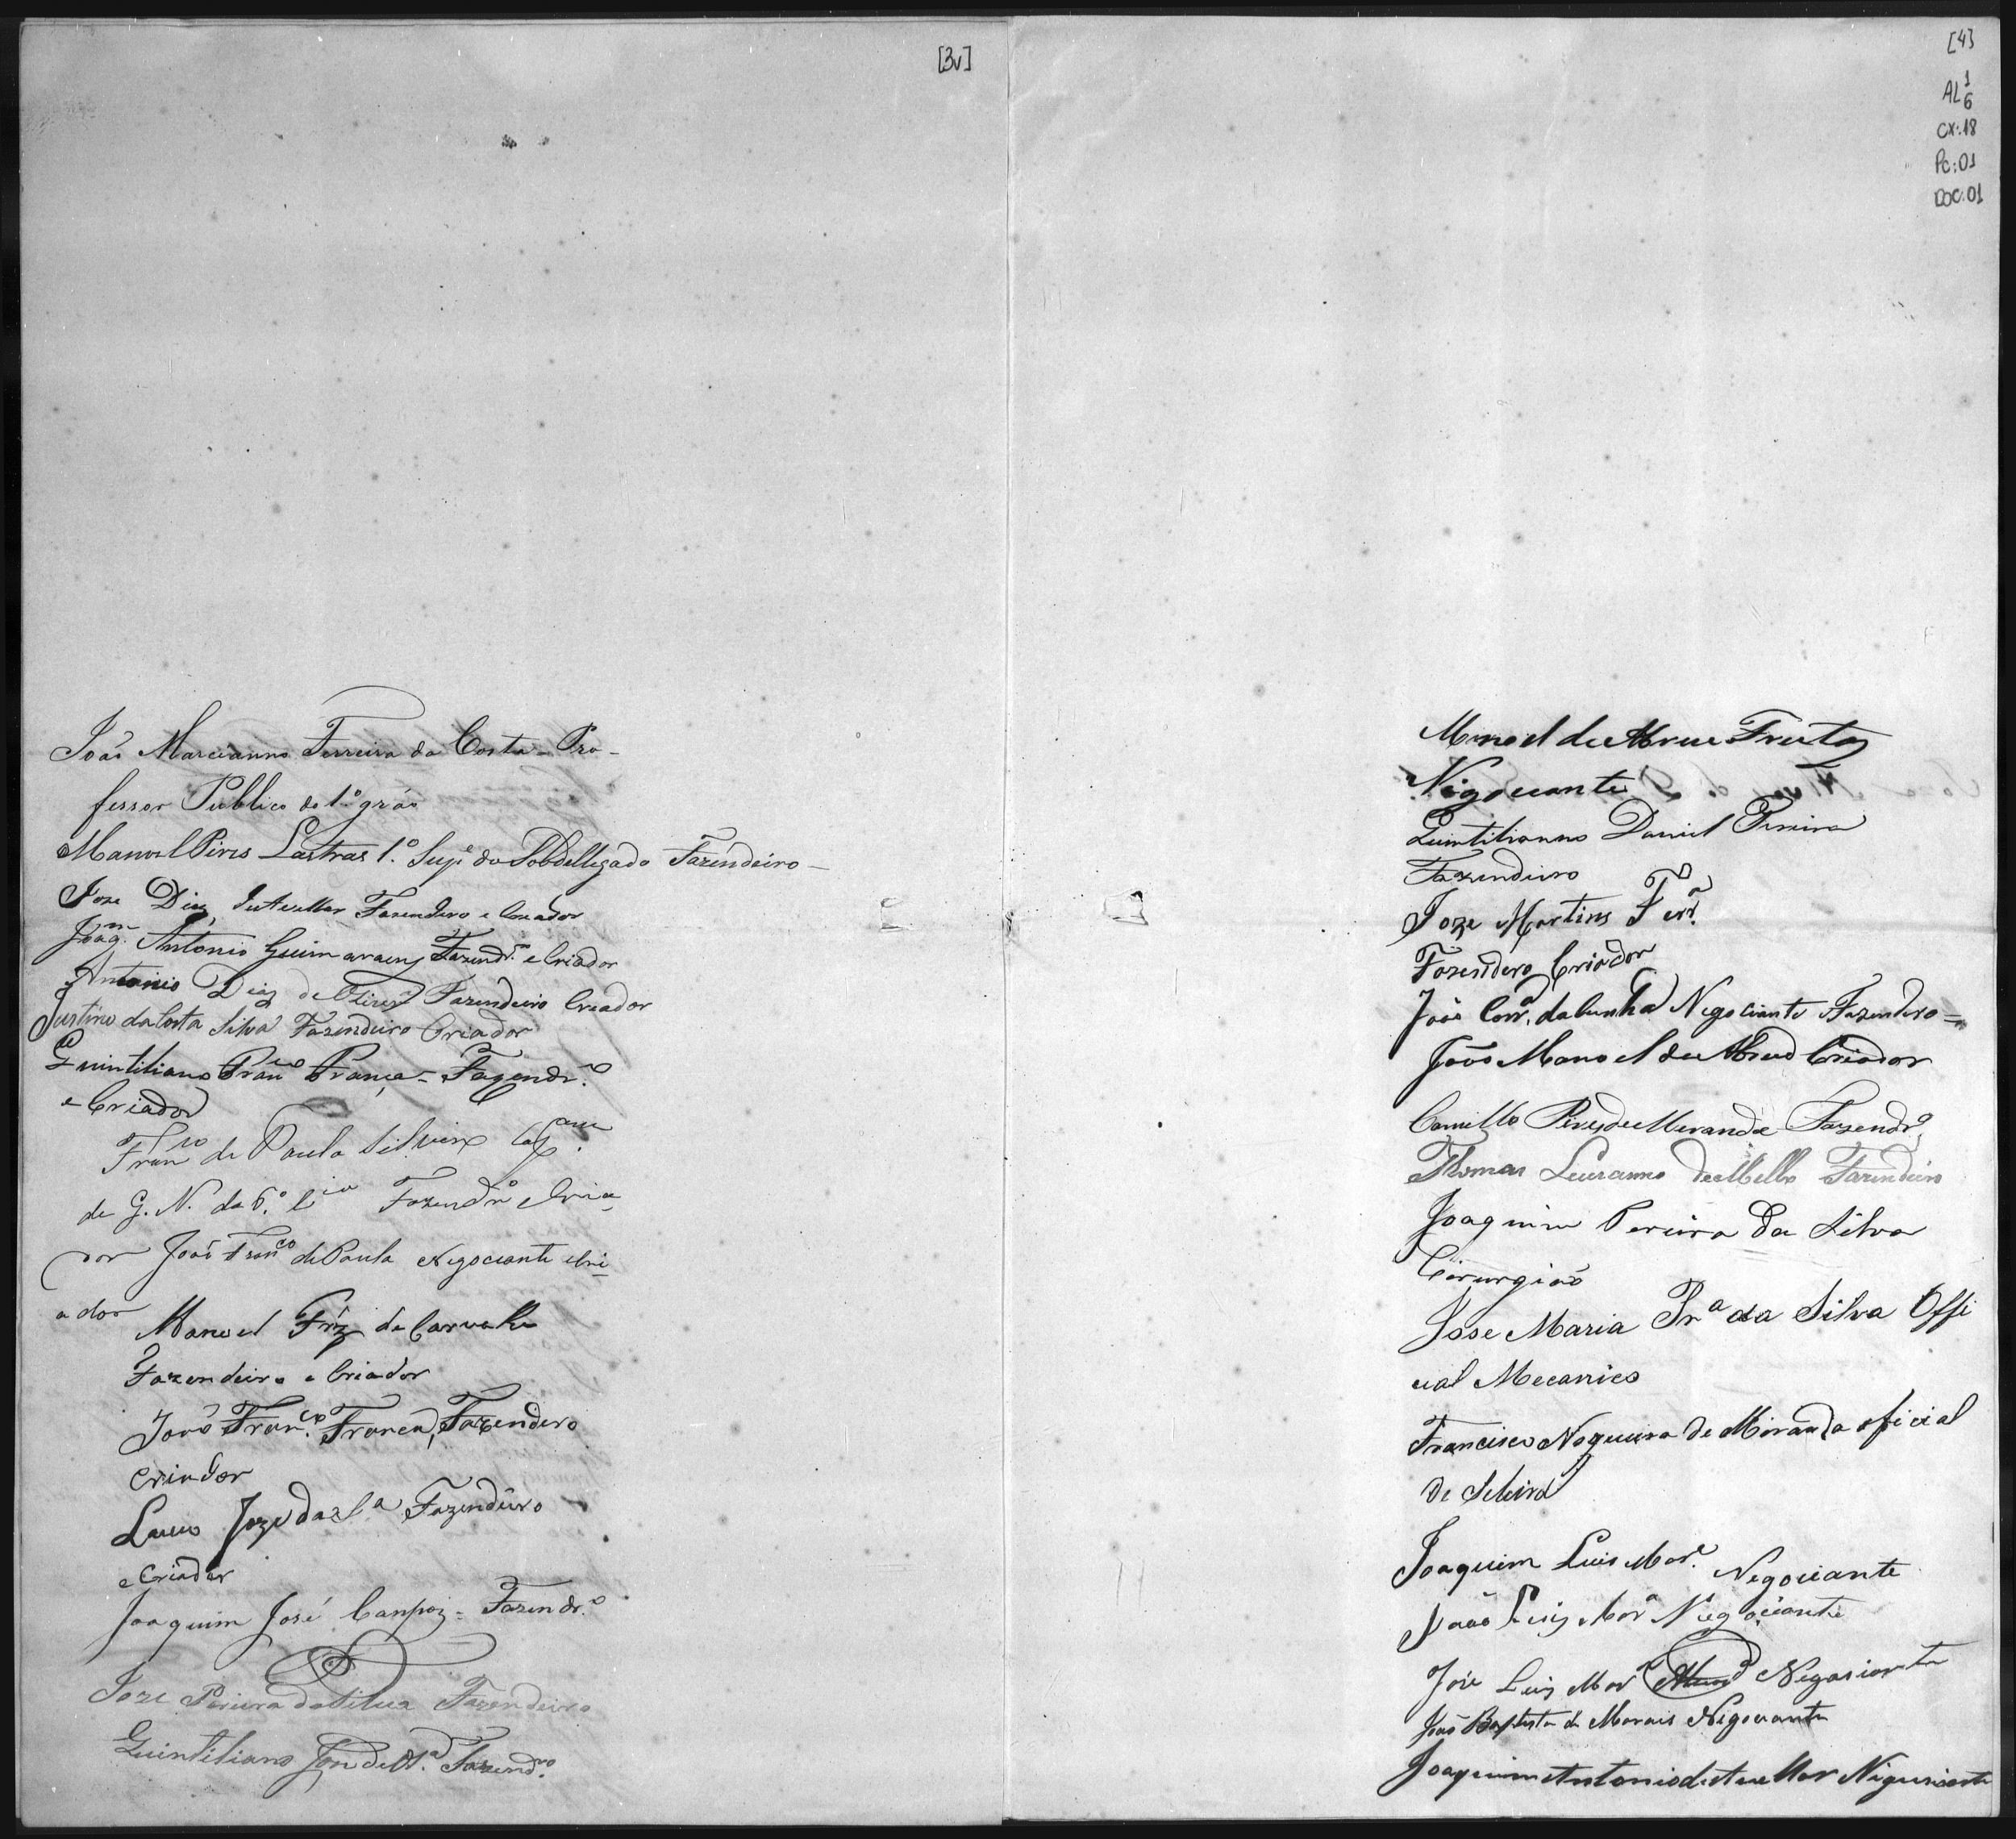 [3v]
João Marcianno Ferreira da Costa - Pro-
fessor Publico do 1º gráo
Manoel Pires Lastras 1.º Sup.e do Sobdellegado Fazendeiro -
Joze Dias de Avellar Fazendero e Creador
Joaq.m Antonio Guimaraens Fazendr.º e Criador
Antonio Dias de Olivrª Fazendeiro Creador
Justino da Costa Silva Fazendeiro Criador
Quintiliano Franco França - Fazendr.º
e Criador
Franco de Paula Silveira Cap.am
de G. N. da 6.ª Cia Fazendrº e Cria-
dor João Franco de Paula Negociante e Cri-
ador
Manoel Friz de Carvalho
Fazendeiro e Criador
João Fran.co Franca, Fazendero
Criador
Laues Joze da Sª Fazendeiro
e Criador
Joaquim José Campoz = Fazendr.º
Joze Pereira da Silva Fazendeiro
Quintiliano Joze de Fazendro.
[4]
AL 1
6
CX:.18
PC:01
DOC:01
Manoel de Abreu Freitas
Nigocuante
Quintilianno Daniel Pereira
Fazendeiro
Joze Martins Ferrª
Fazendero Criador
João Corrª. da Cunha Negociante Fazendero =
João Manoel de Abreu Criador
Camillo Pires de Meranda Fazendrº
Thomas de Mello Fazendeiro
Joaquim Pereira da Silva
Cirurgião
Jose Maria Prª da Silva Offi
cial Mecanico
Francisco Nogueira de Miranda oficial
de Seleiro
Joaquim Luis Mor.ª Negociante
João Luis Morª Negociante
Jose Luis Morª Negosiante
João Baptista de Morais Nigocuante
Joaquim Antonio de Avellar Nigusiante